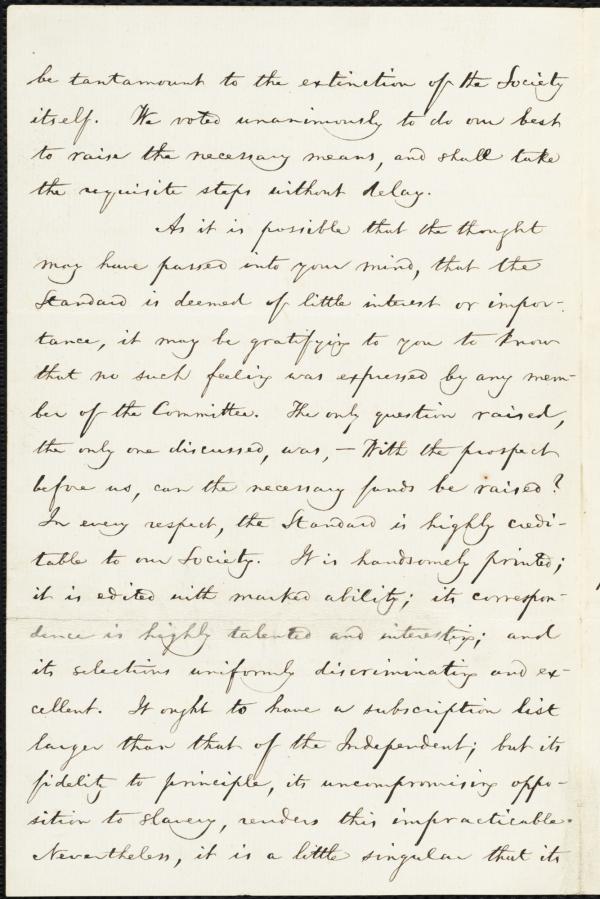 be tantamount to the extinction of the Society
itself. We voted unanimously to do our best
to raise the necessary means, and shall take
the requisite steps without delay.
As it is possible that the thought
may have passed into your mind, that the
Standard is deemed of little interest or impor-
tance, it may be gratifying to you to know
that no such feeling was expressed by any mem-
ber of the Committee. The only question raised,
the only one discussed, was, — With the prospect
before us, can the necessary funds be raised?
In every respect, the Standard is highly credi-
table to our Society. It is handsomely printed;
it is edited with marked ability; its correspon-
dence is highly talented and interesting; and
its selections uniformly discriminating and ex-
cellent. It ought to have a subscription list
larger than that of the Independent; but its
fidelity to principle, its uncompromising oppo-
sition to slavery, renders this impracticable.
Nevertheless, it is a little singular that its